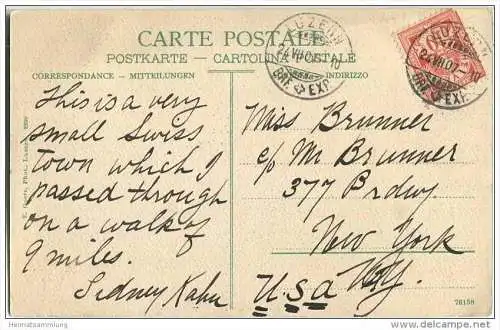 CARTE POSTALE
POSTKARTE - CARTOLINA POSTALE
CORRESPONDANCE - MITTEILUNGEN
INDIRIZZO
LUZERN
BRF. EXP.
LUZERN
24 VII 07
BRF. EXP.
This is a very
small Swiss
town which I
passed through
on a walk of
9 miles.
Sidney Kahn
Miss Brunner
c/o Mr Brunner
377 Brdwy.
New York
U.S.A.
76158